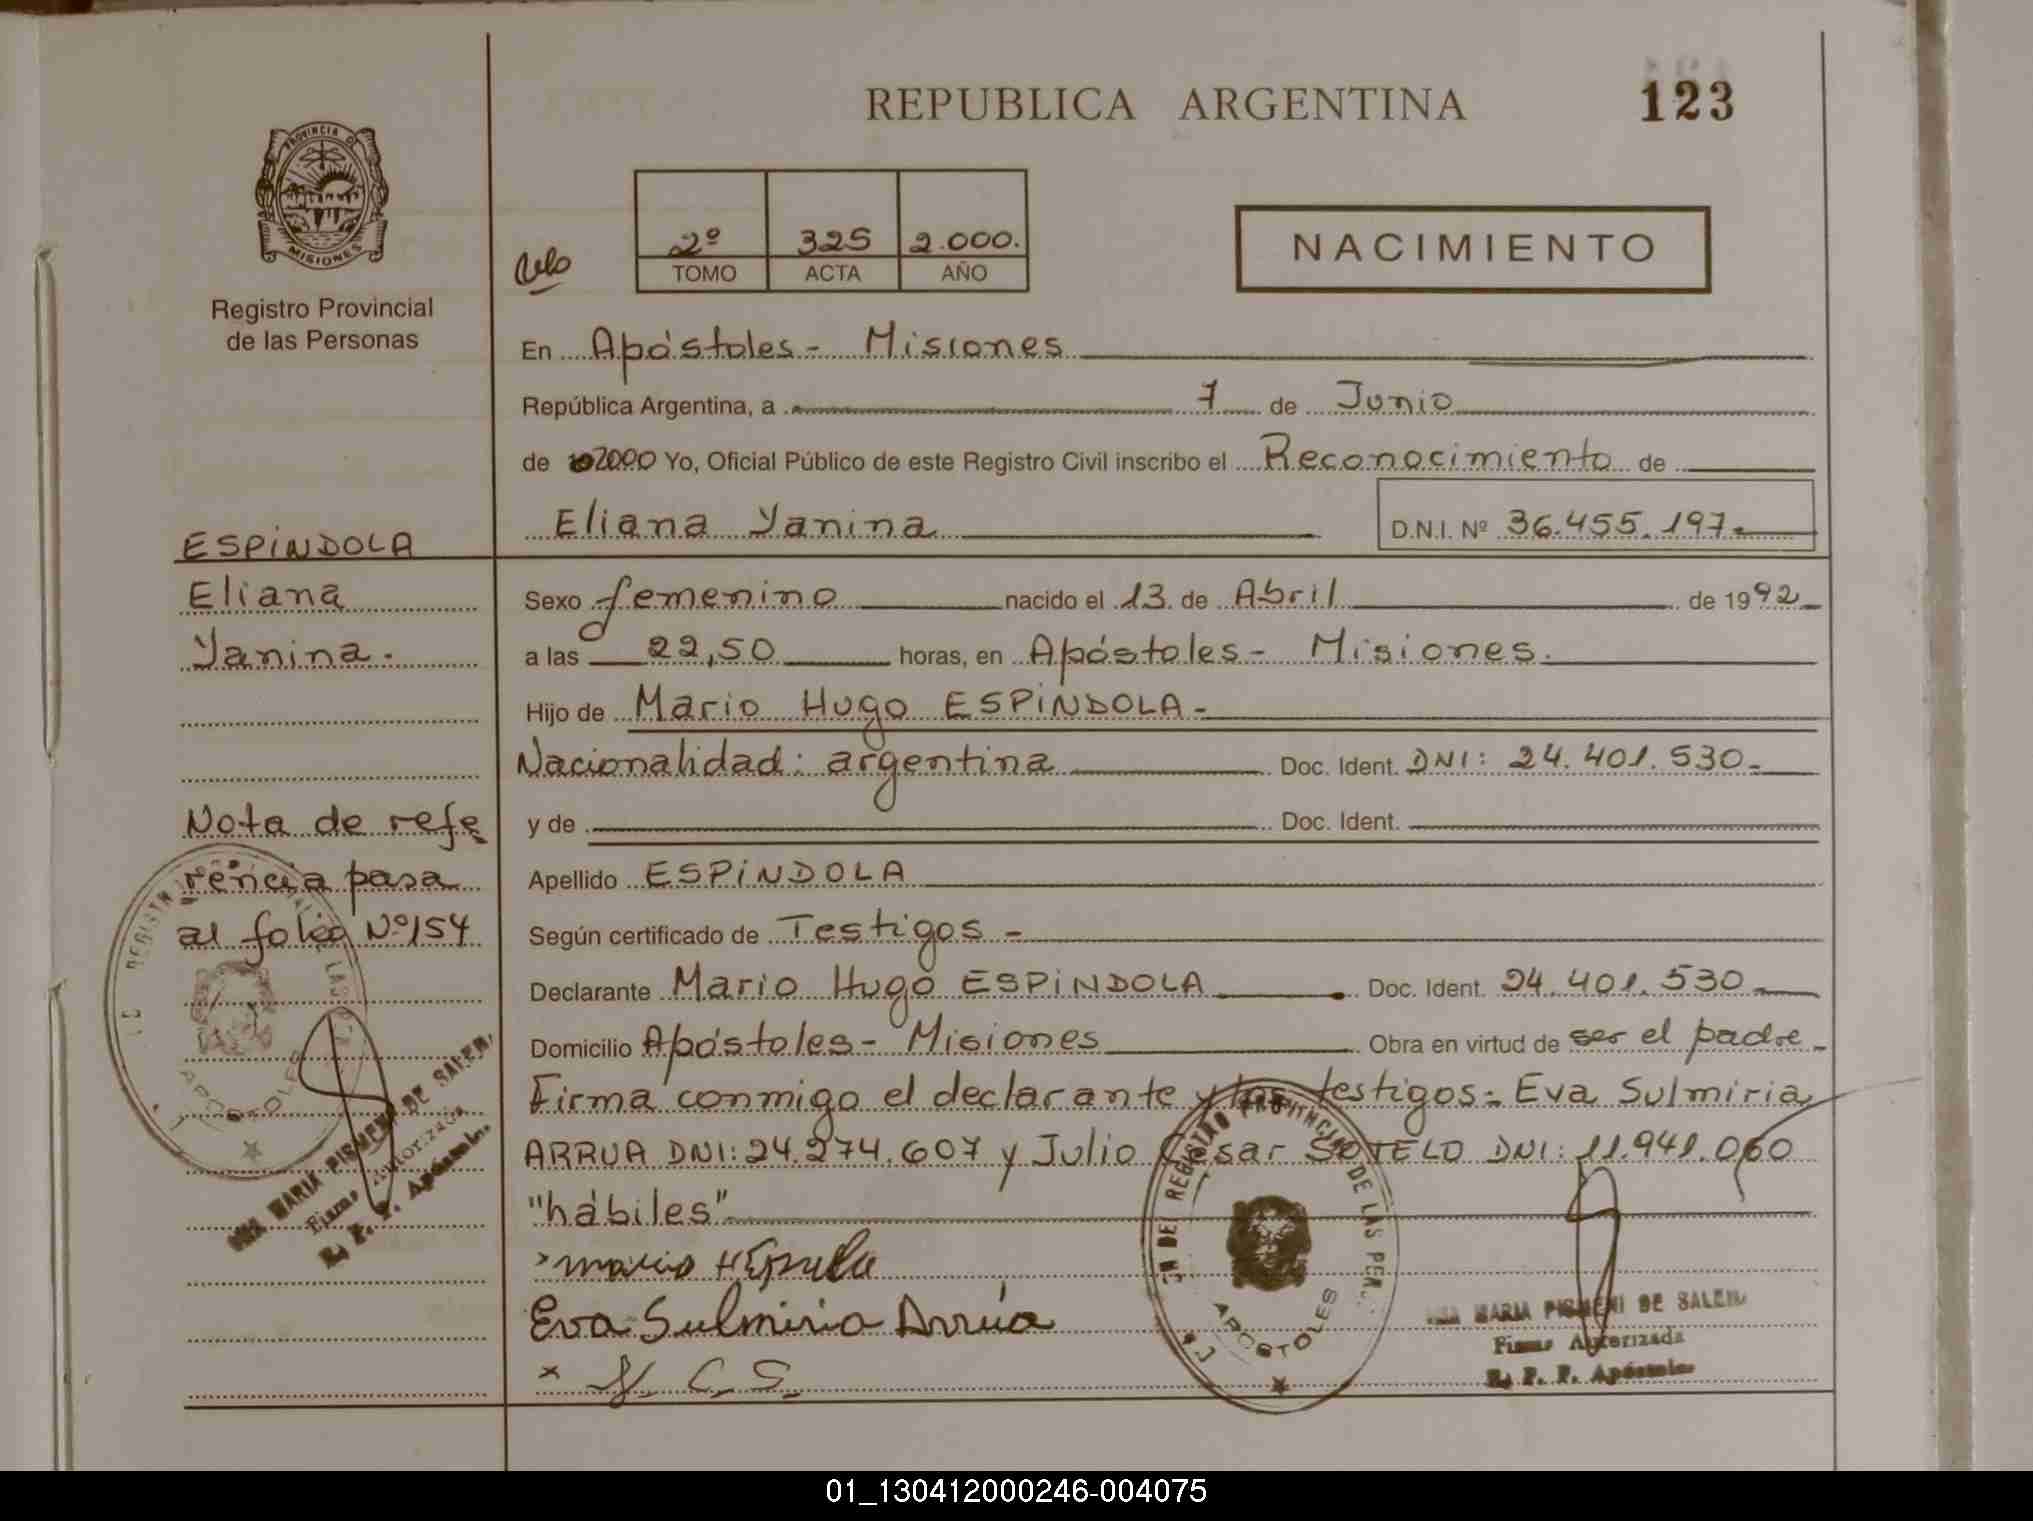 REPUBLICA ARGENTINA
123
PROVINCIA DE
MISIONES
Registro Provincial
de las Personas
2º 325 2.000.
TOMO ACTA AÑO
NACIMIENTO
En Apóstoles - Misiones
República Argentina, a 7 de Junio
de 2000 Yo, Oficial Público de este Registro Civil inscribo el Reconocimiento de
Eliana Yanina D.N.I. Nº 36.455.197
ESPINDOLA
Eliana
Yanina.
Sexo femenino nacido el 13 de Abril de 1992
a las 22,50 horas, en Apóstoles - Misiones.
Hijo de Mario Hugo ESPINDOLA -
Nacionalidad: argentina Doc. Ident. DNI: 24.401.530-
y de Doc. Ident.
Nota de refe
rencia pasa
al folio Nº 154
Apellido ESPINDOLA
Según certificado de Testigos -
Declarante Mario Hugo ESPINDOLA Doc. Ident. 24.401.530
Domicilio Apóstoles - Misiones Obra en virtud de ser el padre -
Firma conmigo el declarante y los testigos: Eva Sulmiria
ARRUA DNI: 24.274.607 y Julio Cesar SOTELO DNI: 11.941.060
"hábiles"
Eva Sulmiria Arrúa
x J. C. S.
APOSTOLES
MARIA DE SALEM
Firma Autorizada
R. P. P. Apóstoles
APOSTOLES
MARIA DE SALEM
Firma Autorizada
R. P. P. Apóstoles
01_130412000246-004075